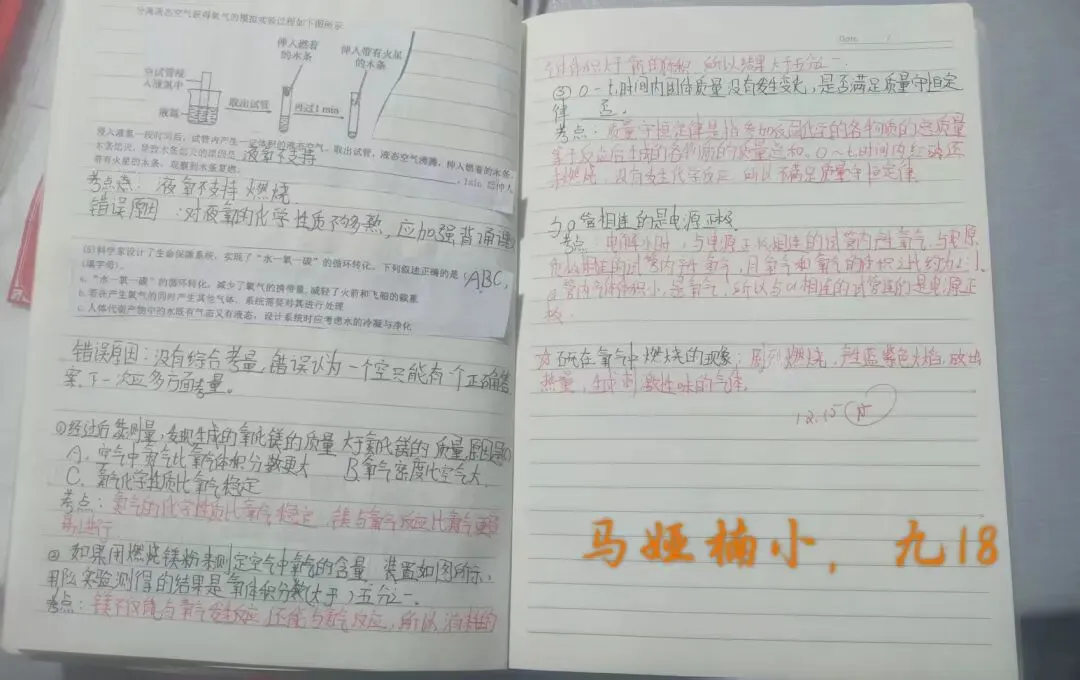 分离液态空气获得氧气的模拟实验过程如下图所示
伸入燃着
的木条
伸入带有火星
的木条
空试管浸
入液氮中
液氮
取出试管
再过1 min
浸入液氮一段时间后，试管内产生一定体积的液态空气，取出试管，液态空气沸腾，伸入燃着的木条，
木条熄灭，导致木条熄灭的原因是 液氮不支持 ，1min后伸入
带有火星的木条，观察到木条复燃。
考点点：液氮不支持 燃烧
错误原因：对液氮的化学性质不够熟，应加强背诵课
(5)科学家设计了生命保障系统，实现了“水一氧一碳”的循环转化，下列叙述正确的是 ABC，
(填字母)。
a.“水一氧一碳”的循环转化，减少了氧气的携带量，减轻了火箭和飞船的载重
b.若在产生氧气的同时产生其他气体，系统需要对其进行处理
c.人体代谢产物中的水既有气态又有液态，设计系统时应考虑水的冷凝与净化
错误原因：没有综合考量，错误认为一个空只能有一个正确答
案，下一次应多方面考量。
①经过后续测量，发现生成的氧化镁的质量大于氮化镁的质量，原因是()
A、空气中氮气比氧气体积分数更大 B、氧气密度比空气大、
C、氮气化学性质比氧气稳定
考点：氮气的化学性质比氧气稳定，镁与氧气反应比氮气更容
易进行
② 如果用燃烧镁粉来测定空气中氧气的含量，装置如图所示，
那么实验测得的结果是氧体积分数(大于)五分之一、
考点：镁不仅能与氧气发生反应，还能与氮气反应，所以，消耗的
Date
气体体积大于氧的体积，所以结果大于五分之一.
③ 0-t₁时间内固体质量没有发生变化，是否满足质量守恒定
律 否.
考点：质量守恒定律是指参加反应化学的各物质的总质量
等于反应后生成的各物质的质量总和、0~t₁时间内红磷还
未燃烧，没有发生化学反应，所以不满足质量守恒定律
与a管相连的是电源正极
考点 电解水时，与电源正极相连的试管内产生氧气，与电源
负极相连的试管内产生氢气，且氢气和氧气的体积之比约为2:1.
a管内气体体积小，是氧气，所以与a相连的试管连的是电源正
极.
硫在氧气中燃烧的现象：剧烈燃烧，产生蓝紫色火焰，放出
热量，生成刺激性味的气体.
12.15
马娅楠小， 九18